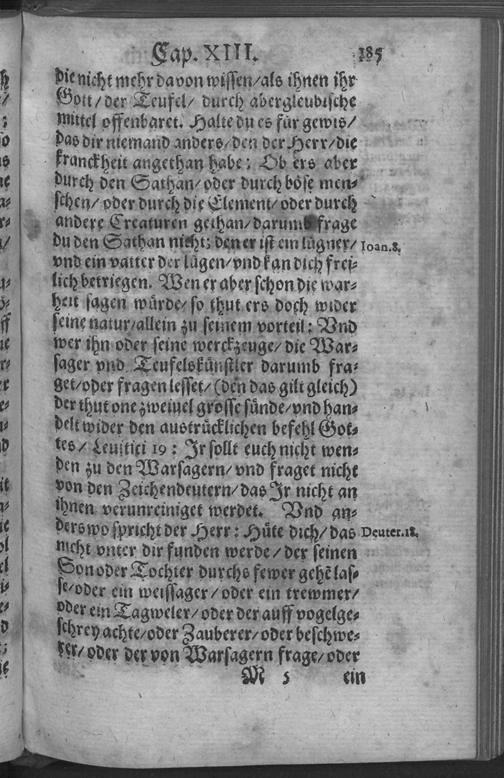 Cap. XIII. 185
die nicht mehr davon wissen/als ihnen ihr
Gott/der Teufel/ durch abergleubische
mittel offenbaret. Halte du es für gewis/
das dir niemand anders/den der Herr/die
kranckheit angethan habe: Ob ers aber
durch den Sathan/oder durch böse men-
schen/oder durch die Element/oder durch
andere Creaturen gethan/darumb frage
du den Sathan nicht; den er ist ein lügner/ Ioan.8.
vnd ein vatter der lügen/vnd kan dich frei-
lich betriegen. Wen er aber schon die war-
heit sagen würde/so thut ers doch wider
seine natur/allein zu seinem vorteil: Vnd
wer ihn oder seine werckzeuge/die War-
sager vnd Teufelskünstler darumb fra-
get/oder fragen lesset/(den das gilt gleich)
der thut one zweiuel grosse sünde/vnd han-
delt wider den austrücklichen befehl Got-
tes/ Leuitici 19: Ir sollt euch nicht wen-
den zu den Warsagern/vnd fraget nicht
von den Zeichendeutern/das Ir nicht an
ihnen verunreiniget werdet. Vnd an-
derswo spricht der Herr: Hüte dich/das Deuter.18.
nicht vnter dir funden werde/der seinen
Son oder Tochter durchs fewer gehē las-
se/oder ein weissager/oder ein trewmer/
oder ein Tagweler/oder der auff vogelge-
schrey achte/oder Zauberer/oder beschwe-
rer/oder der von Warsagern frage/oder
M 5 ein